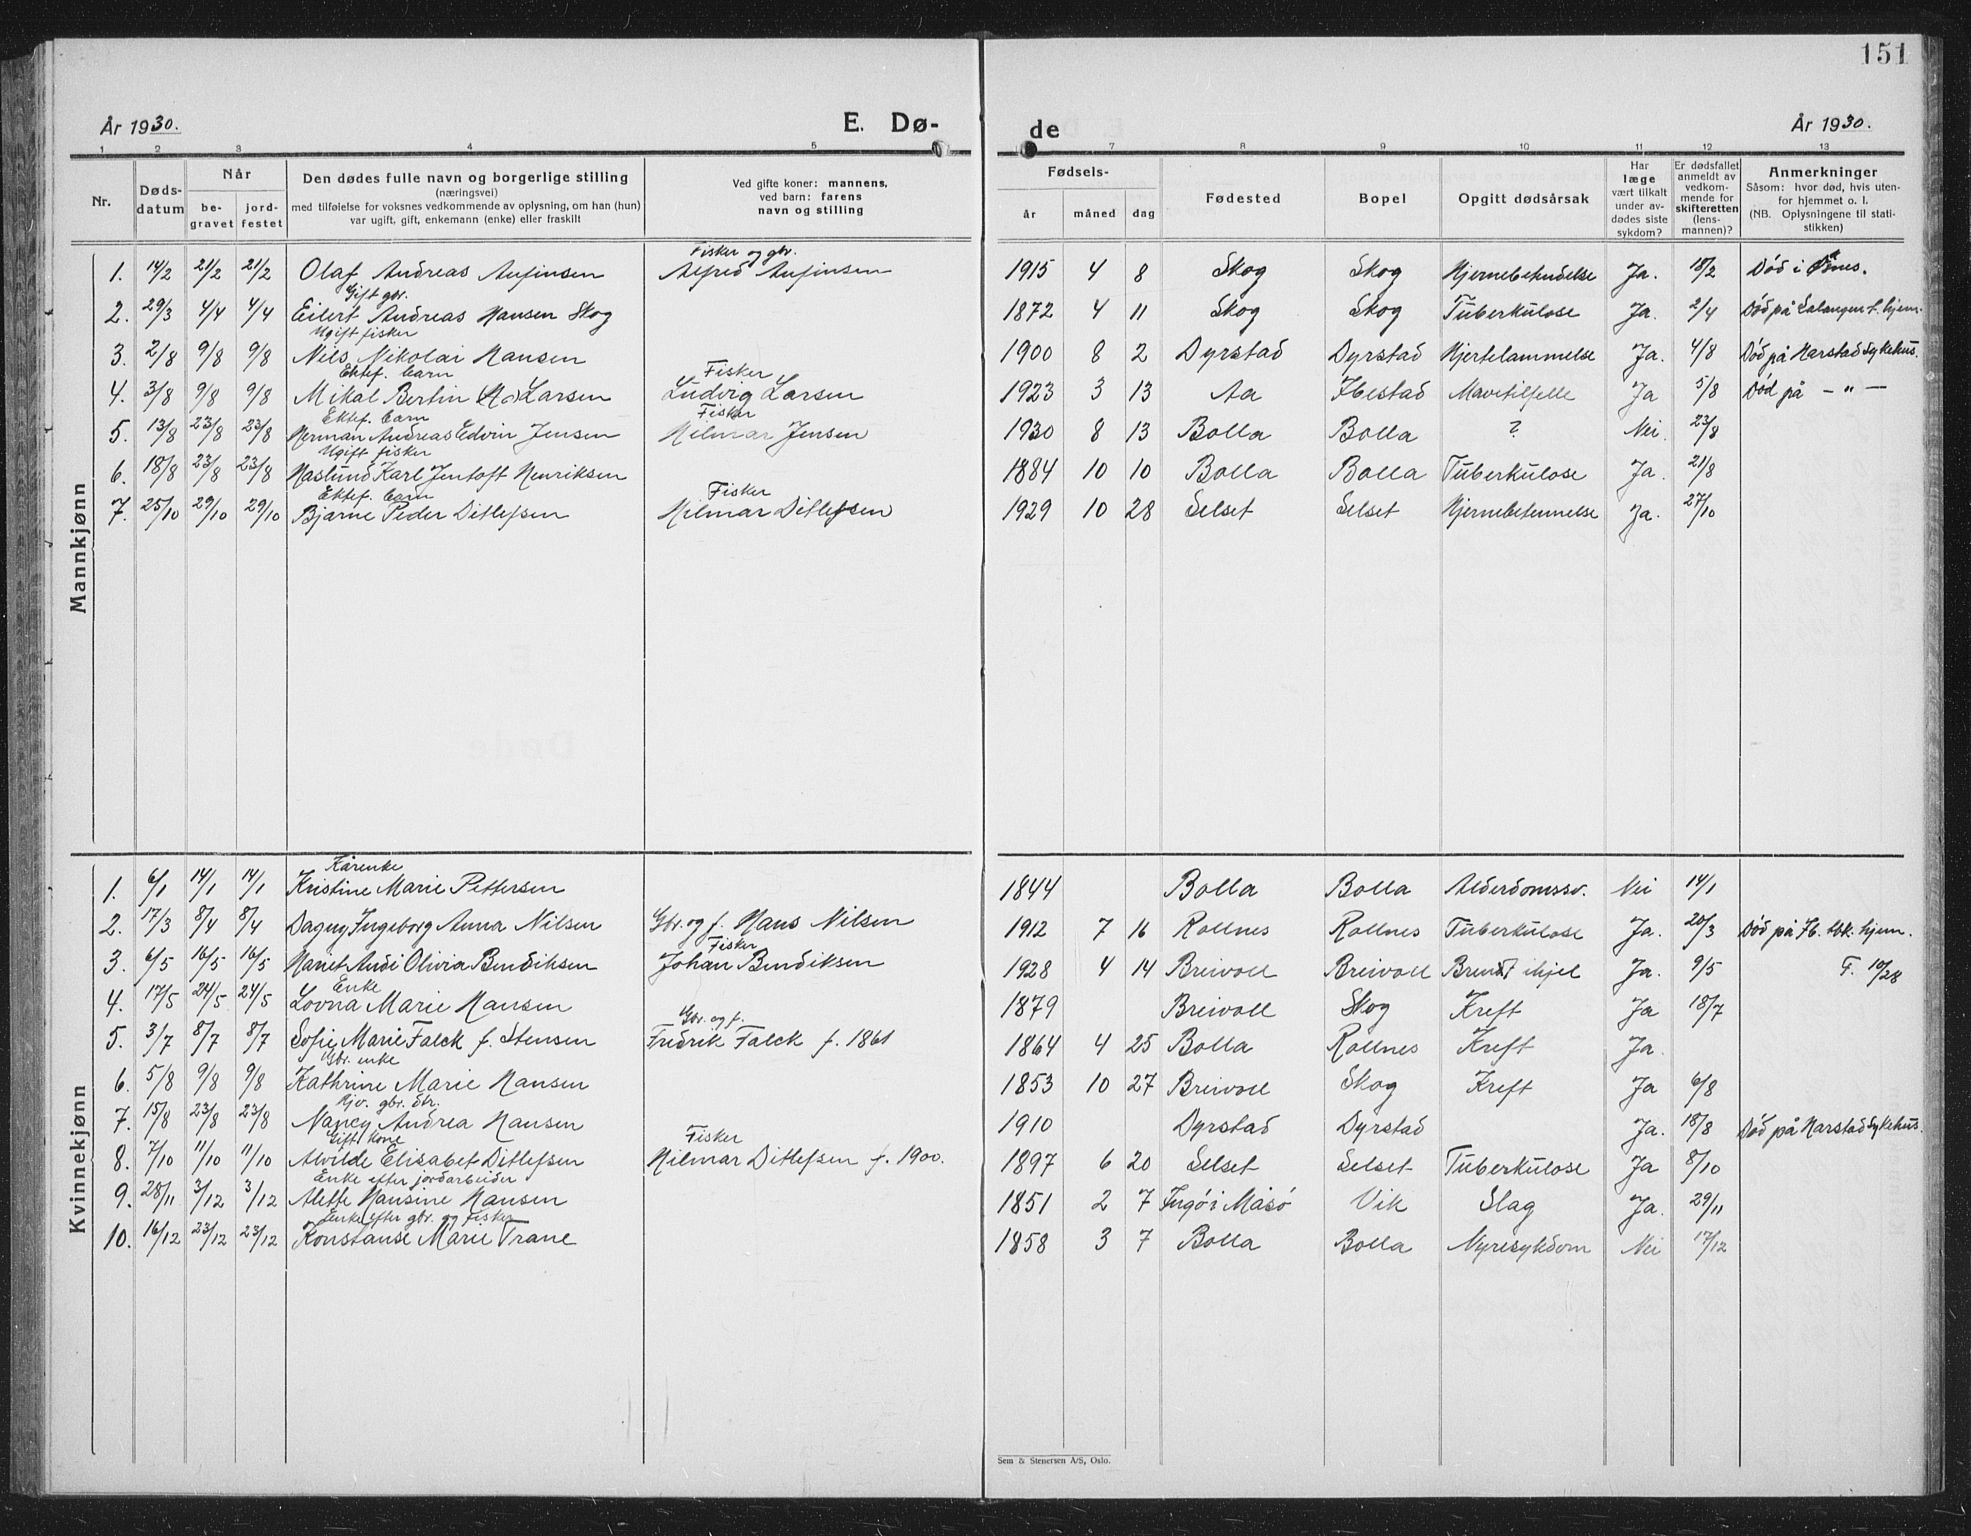 151
År 1930.
E. Dø-
de
År 1930.
1 2 3 4 5 7 8 9 10 11 12 13
Nr.
Døds-
datum
Når
be-
gravet
jord-
festet
Den dødes fulle navn og borgerlige stilling
(næringsvei)
med tilføielse for voksnes vedkommende av oplysning, om han (hun)
var ugift, gift, enkemann (enke) eller fraskilt
Ved gifte koner: mannens,
ved barn: farens
navn og stilling
Fødsels-
år
måned
dag
Fødested
Bopel
Opgitt dødsårsak
Har
læge
vært tilkalt
under av-
dødes siste
sykdom?
Er dødsfallet
anmeldt av
vedkom-
mende for
skifteretten
(lens-
mannen)?
Anmerkninger
Såsom: hvor død, hvis uten-
for hjemmet o. l.
(NB. Oplysningene til stati-
stikken)
Mannkjønn
Fisker og gbr.
1. 14/2 21/2 21/2 Olaf Andreas Anfinsen Alfred Anfinsen 1915 4 8 Skog Skog Hjernebetendelse Ja. 18/2 Död i
Gift gbr.
2. 29/3 4/4 4/4 Eilert Andreas Hansen Skog 1872 4 11 Skog Skog Tuberkulose Ja. 2/4 Död på Salangen t. hjem.
Ugift fisker
3. 2/8 9/8 9/8 Nils Nikolai Hansen 1900 8 2 Dyrstad Dyrstad Hjertelammelse Ja. 4/8 Död på Harstad Sykehus.
Ektef. barn Fisker
4. 3/8 9/8 9/8 Mikal Bertin Larsen Ludvig Larsen 1923 3 13 Aa Ibestad Mavetilfelle Ja 5/8 Död på — " —
Ektef. barn Fisker
5. 13/8 23/8 23/8 Herman Andreas Edvin Jensen Hilmar Jensen 1930 8 13 Bolla Bolla ? Nei. 23/8
Ugift fisker
6. 18/8 23/8 23/8 Haslund Karl Jentoft Henriksen 1884 10 10 Bolla Bolla Tuberkulose Ja. 21/8
Ektef. barn Fisker
7. 25/10 29/10 29/10 Bjarne Peder Ditlefsen Hilmar Ditlefsen 1929 10 28 Selset Selset Hjernebetennelse Ja. 27/10
Kvinnekjønn
Kårenke
1. 6/1 14/1 14/1 Kristine Marie Pettersen 1844 Bolla Bolla Alderdomssv. Nei 14/1
2. 17/3 8/4 8/4 Dagny Ingeborg Anna Nilsen Gbr. og f. Hans Nilsen 1912 7 16 Rollnes Rollnes Tuberkulose Ja. 20/3 Död på Ib. tbk. hjem.
Fisker
3. 6/5 16/5 16/5 Hariet Andi Olivia Bendiksen Johan Bendiksen 1928 4 14 Breivoll Breivoll Brent ihjel Ja. 9/5 F. 10/28
Enke
4. 17/5 24/5 24/5 Lovna Marie Hansen 1879 Breivoll Skog Kreft Ja 18/7
Gbr. og f.
5. 3/7 8/7 8/7 Sofie Marie Falck f. Stensen Fredrik Falck f. 1861 1864 4 25 Bolla Rollnes Kreft Ja.
Gbr. enke
6. 5/8 9/8 9/8 Kathrine Marie Hansen 1853 10 27 Breivoll Skog Kreft Ja 6/8
Hjv. gbr. dtr.
7. 15/8 23/8 23/8 Nancy Andrea Hansen 1910 Dyrstad Dyrstad Ja. 18/8 Död på Harstad Sykehus.
Gift kone Fisker
8. 7/10 11/10 11/10 Alvilde Elisabet Ditlefsen Hilmar Ditlefsen f. 1900. 1897 6 20 Selset Selset Tuberkulose Ja 8/10
Enke efter jordarbeider
9. 28/11 3/12 3/12 Alette Hansine Hansen 1851 2 7 Ingö i Måsö Vik Slag Ja. 29/11
Enke efter gbr. og fisker
10. 16/12 23/12 23/12 Konstanse Marie Trane 1858 3 7 Bolla Bolla Nyresykdom Nei 17/12
Sem & Stenersen A/S, Oslo.